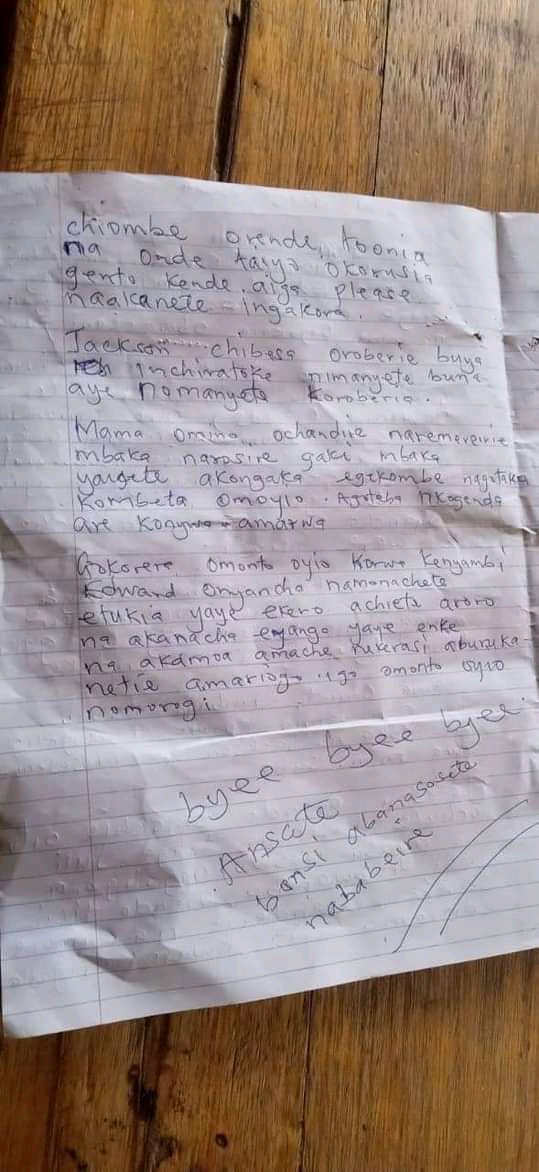 chiombe orende, toonia
na onde taiyo okorusia
gento kende aiga please
naakanete ingakora.
Jackson chibesa oroberie buya
inchiratoke nimanyete buna
aye nomanyete koroberia.
Mama omino ochandire naremereirie
mbaka narasire gaki mbaka
yaigete akongaka egekombe nagotaka
kombeta omoyio. Agoteba nkogenda
are konywa amarwa
Gokorere omonto oyio korwa Kenyambi
Edward Onyancha namonachete
etukia yaye ekero achiete aroro
na akanacha eyanga yaye enke
na akamoa amache nakerasi aburuka
netie amariogo igo omonto oyio
nomorogi
byee byee byee.
Ansete
bonsi abanasosete
nababeire